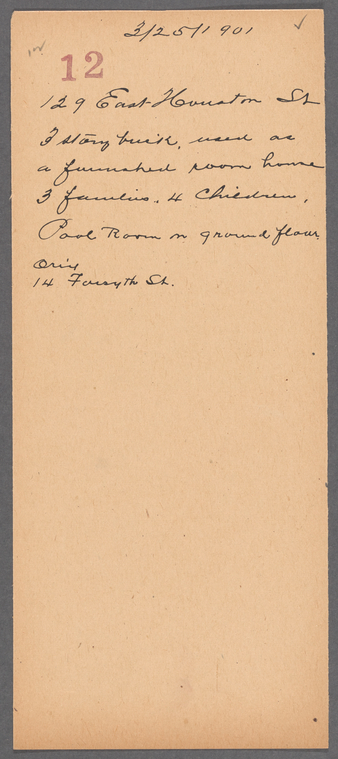 3/25/1901
12
129 East Houston St
3 story brick, used as
a furnished room house
3 families. 4 Children.
Pool Room on ground floor.
14 Forsyth St.